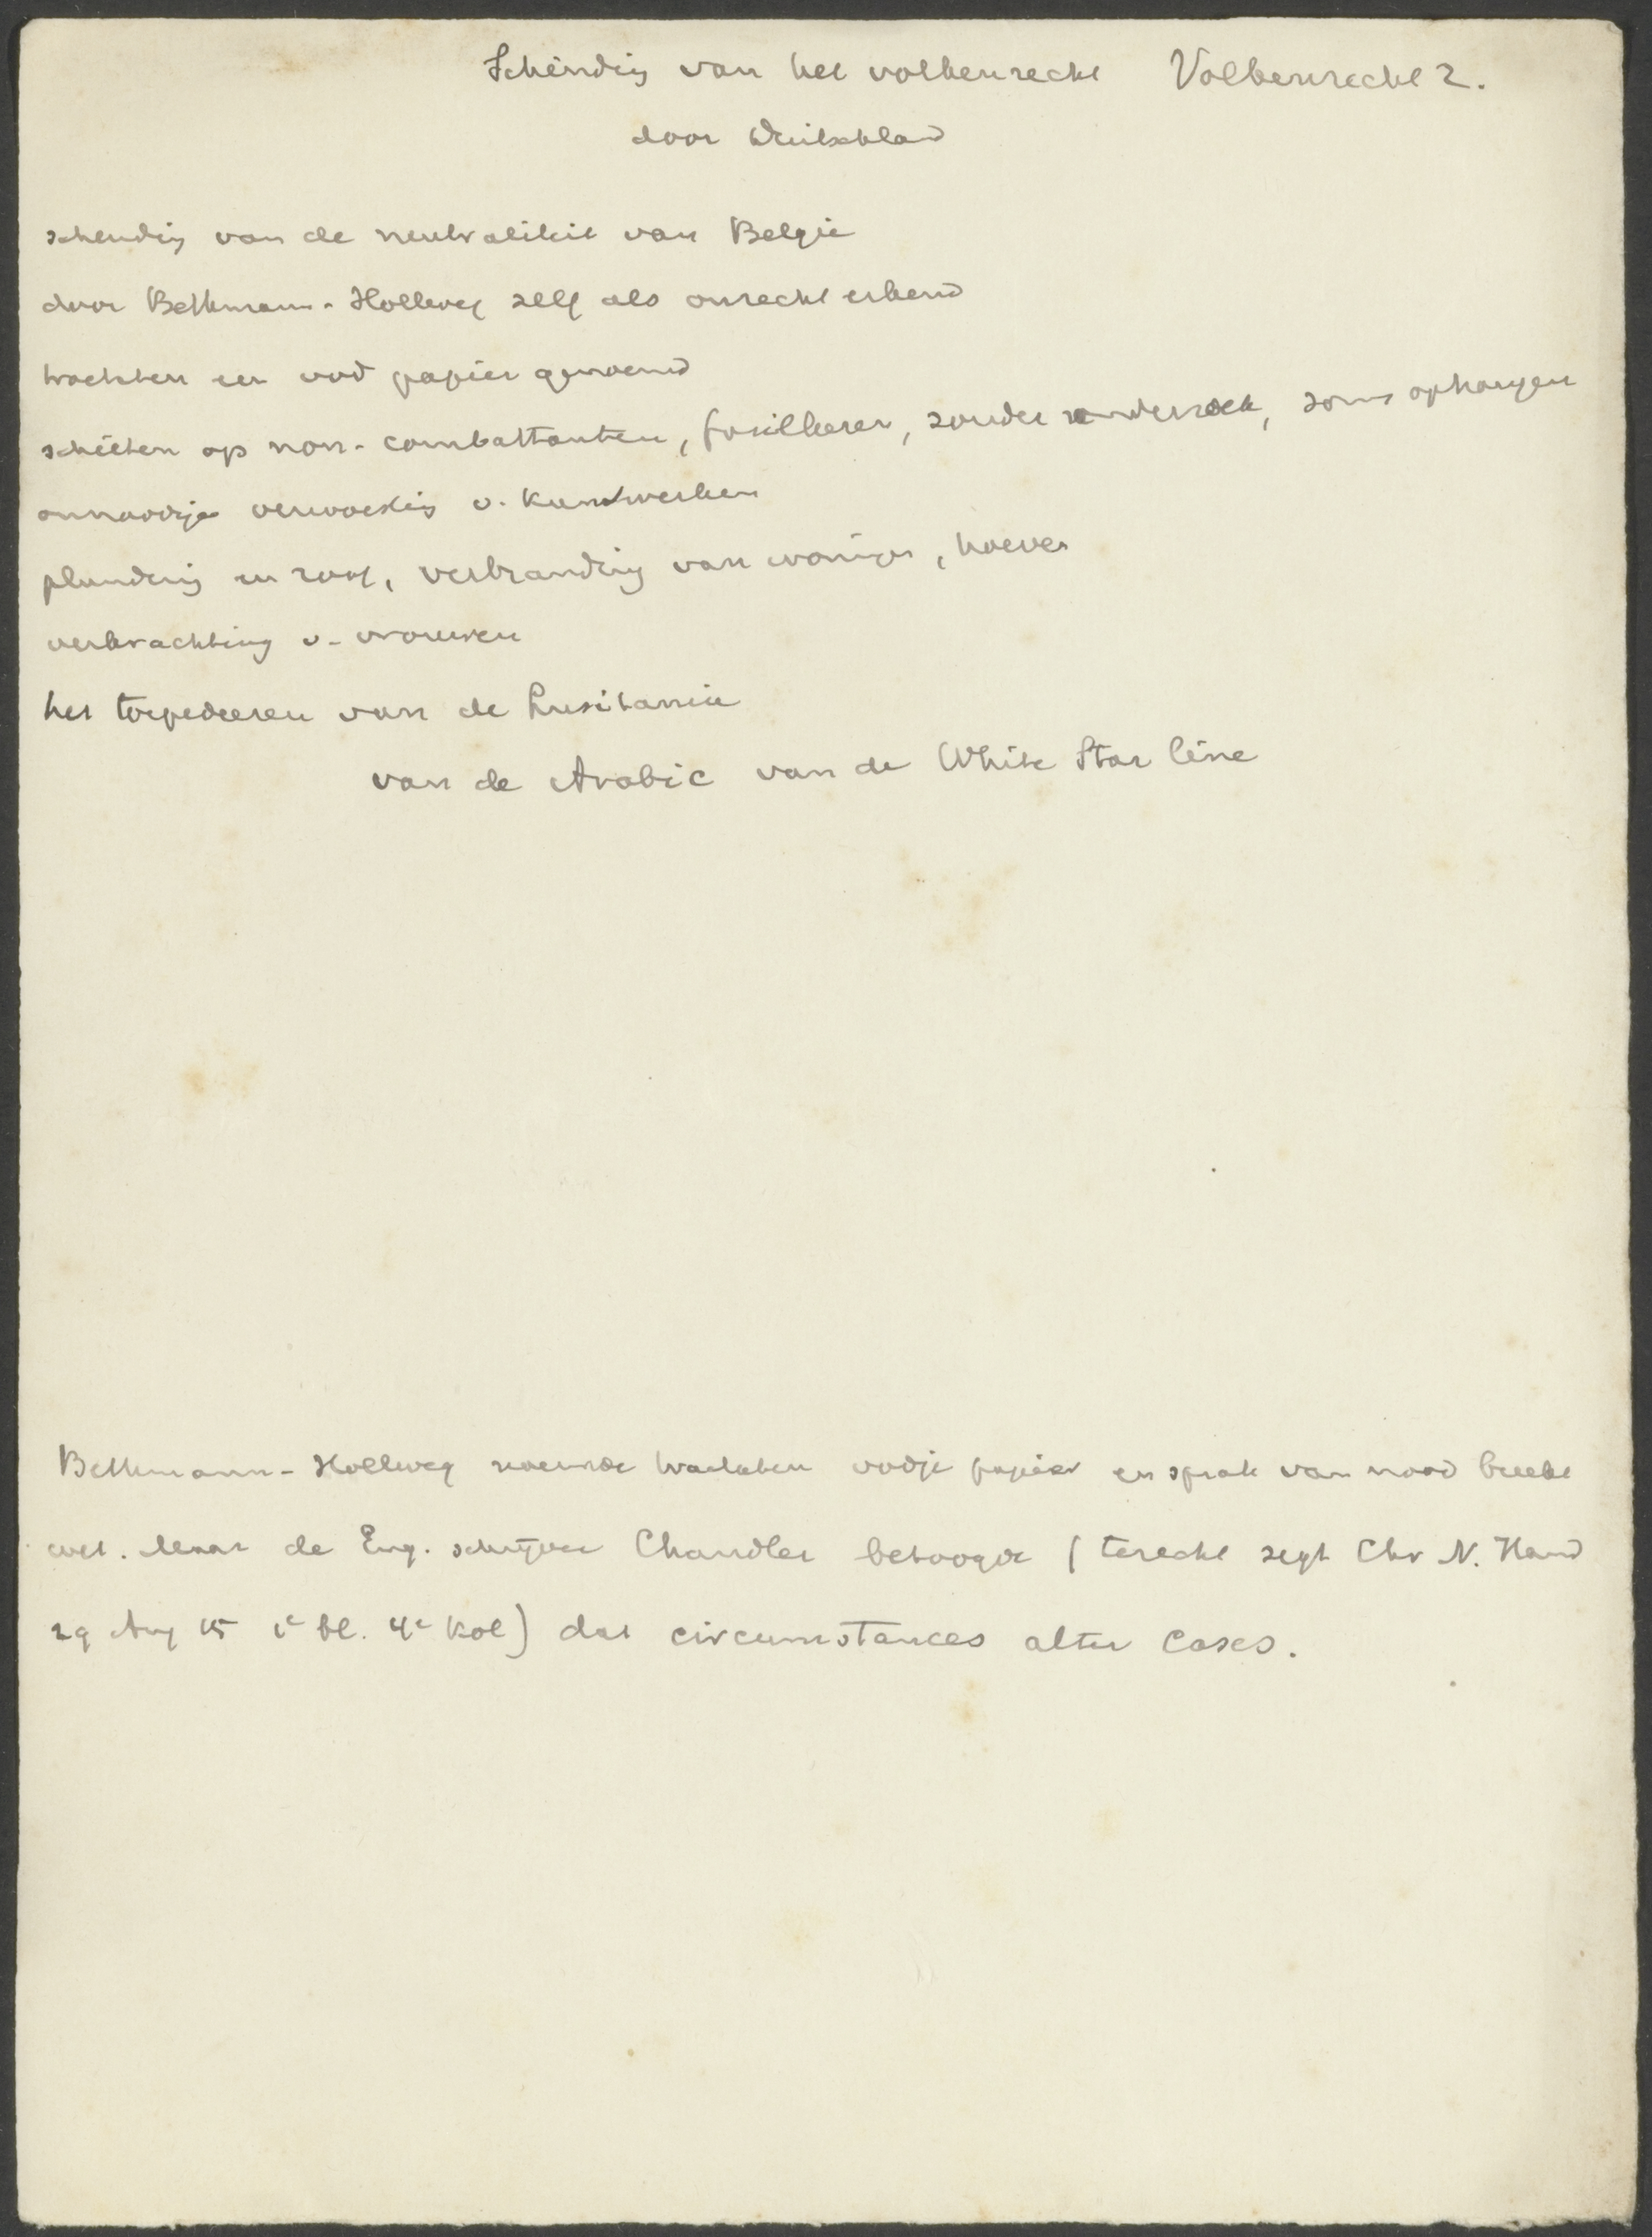 Schending van het volkenrecht Volkenrecht 2.
door Duitschland
schending van de neutraliteit van Belgie
door Bethmann-Hollweg zelf als onrecht erkend
tractaten een vod papier genoemd
schieten op non-combattanten, fusilleeren, zonder onderzoek, soms ophangen
onnoodige verwoesting v. kunstwerken
plundering en roof, verbranding van woningen, hoeven
verkrachting v. vrouwen
het torpedeeren van de Lusitania
van de Arabic van de White Star line
Bethmann-Hollweg noemde tractaten vodje papier en sprak van nood breekt
wet. Maar de Eng. schrijver Chandler betoogde (terecht zegt Chr N. Hand
29 Aug 15 1e bl. 4e kol) dat circumstances alter cases.